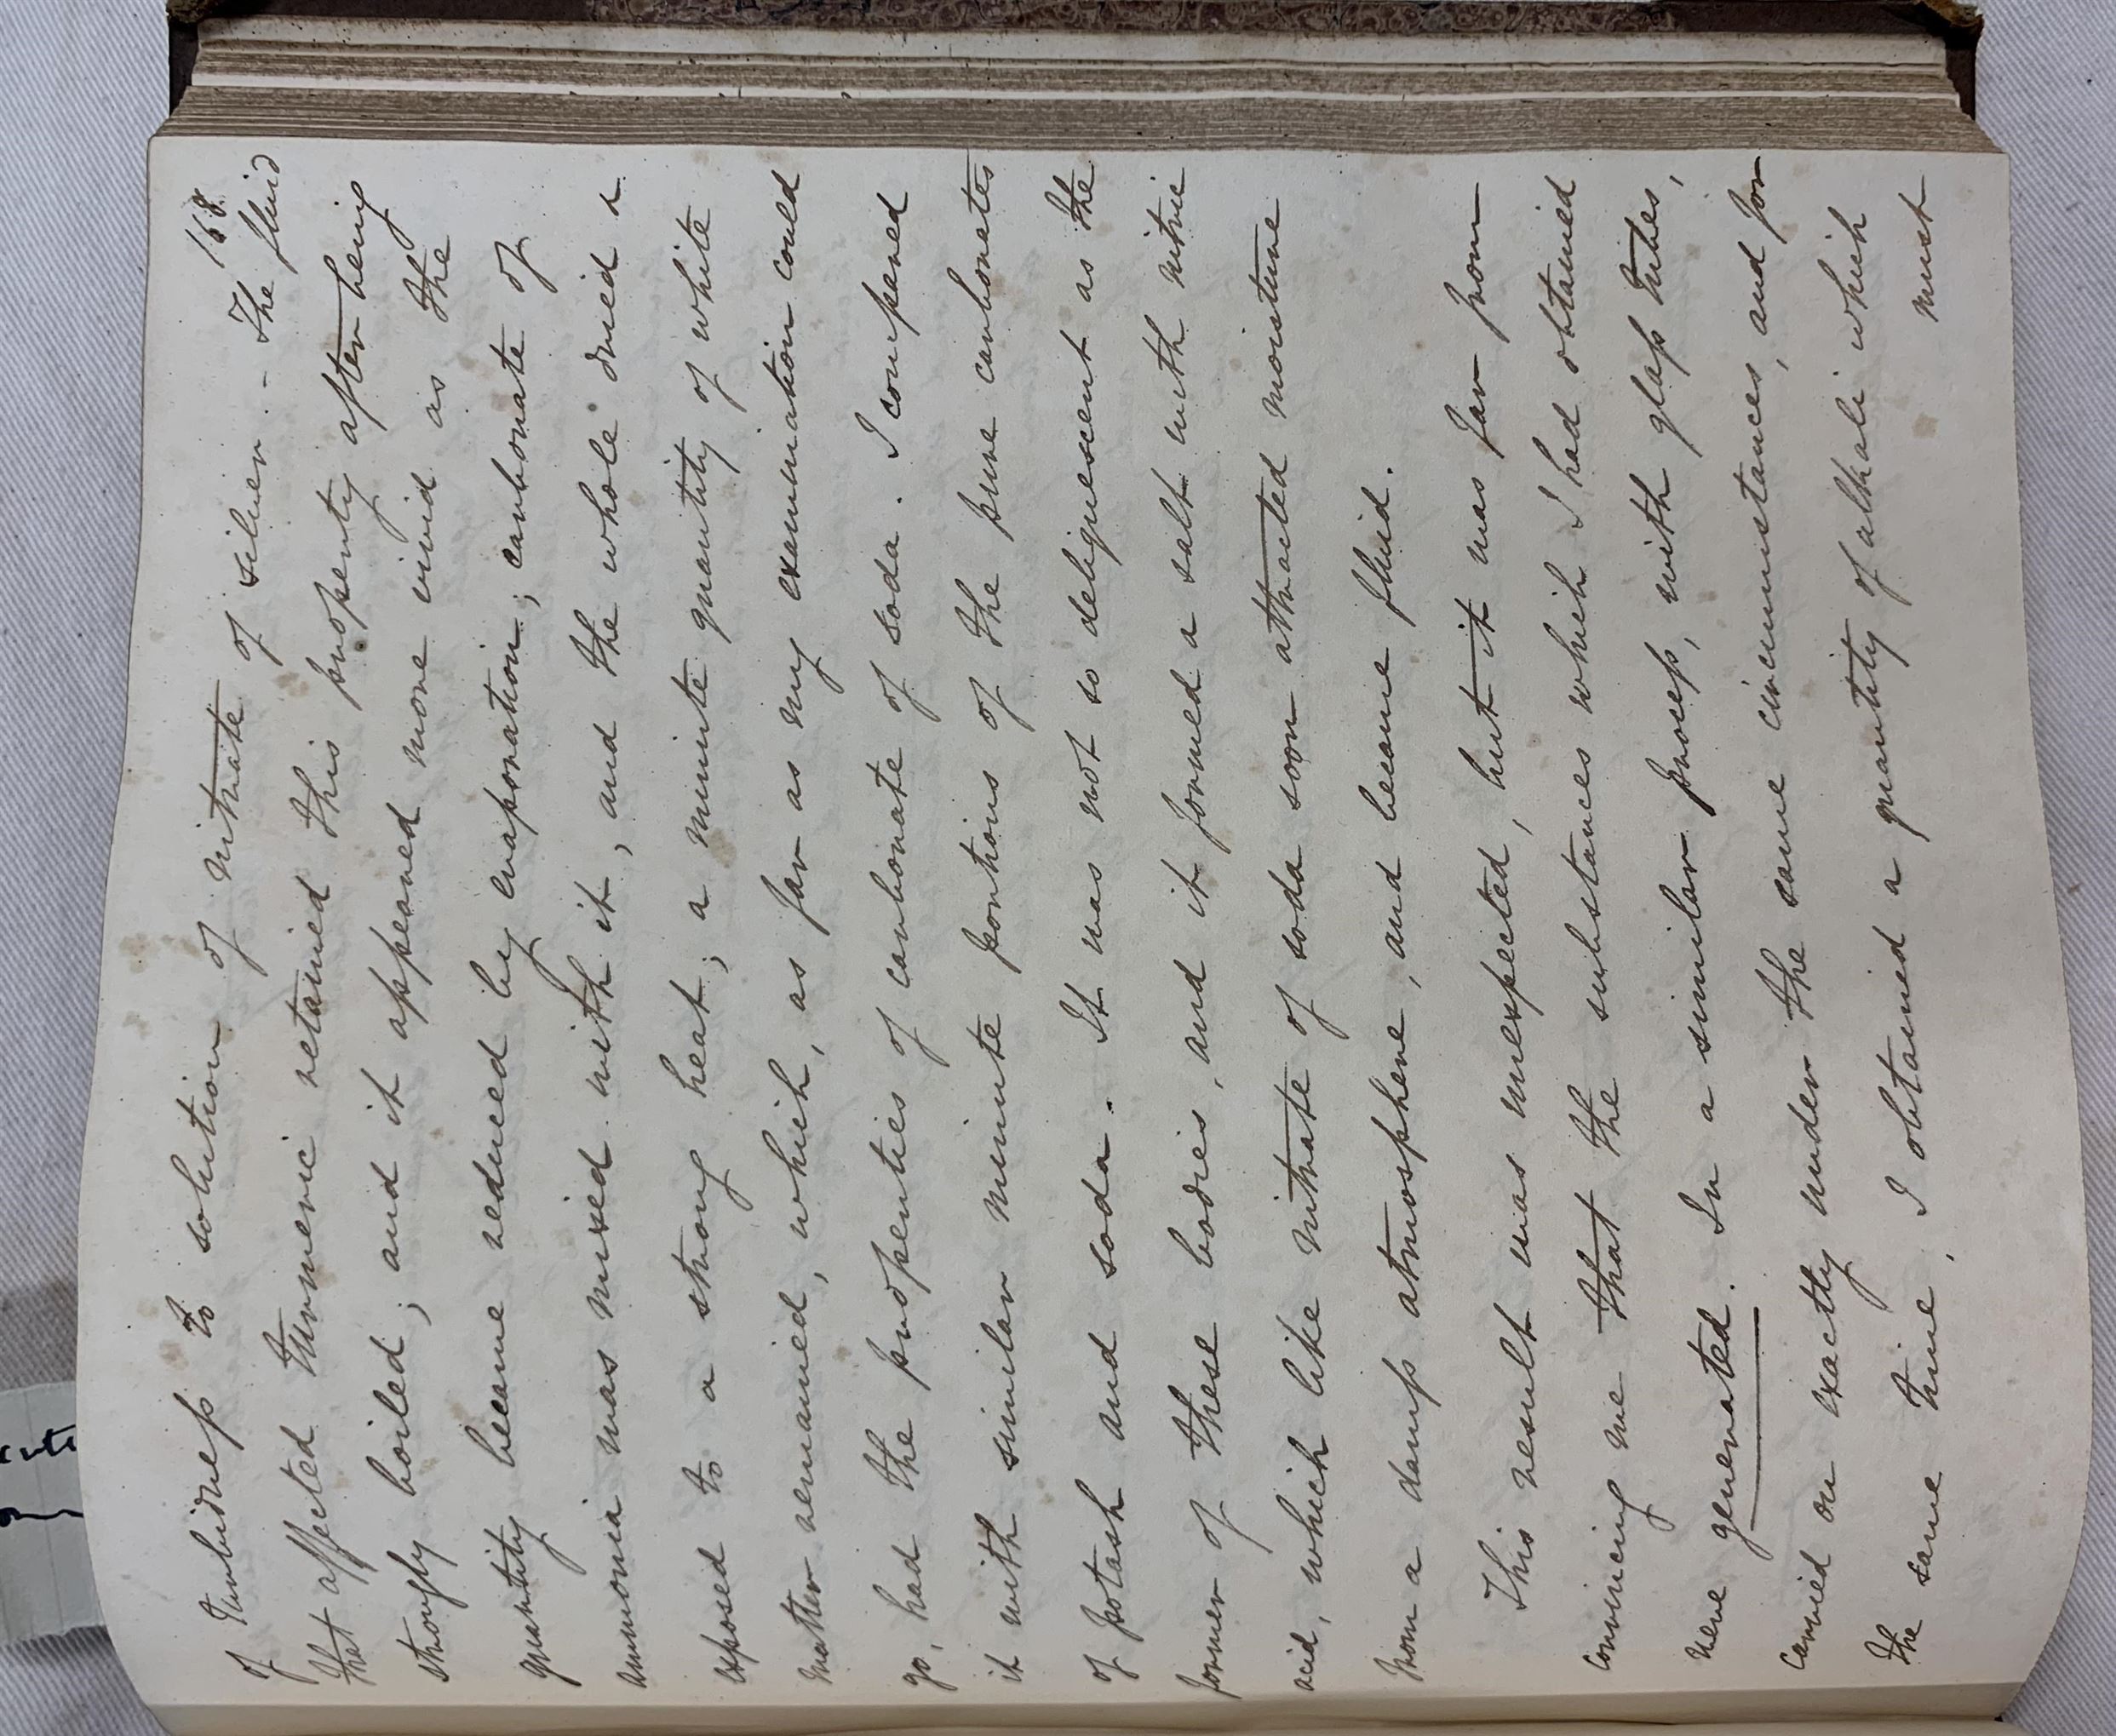 168.
of turbidness to solution of nitrate of silver. - The fluid
that affected turmeric retained this property after being
strongly boiled; and it appeared more vivid as the
quantity became reduced by evaporation; carbonate of
ammonia was mixed with it, and the whole dried &
exposed to a strong heat; a minute quantity of white
matter remained, which, as far as my examination could
go, had the properties of carbonate of soda. I compared
it with similar minute portions of the pure carbonates
of potash and soda. It was not so deliquescent as the
former of these bodies, and it formed a salt with nitric
acid, which like nitrate of soda soon attracted moisture
from a damp atmosphere, and became fluid.
This result was unexpected, but it was far from
convincing me that the substances which I had obtained
were generated. In a similar process, with glass tubes,
carried on exactly under the same circumstances, and for
the same time, I obtained a quantity of alkali which
must